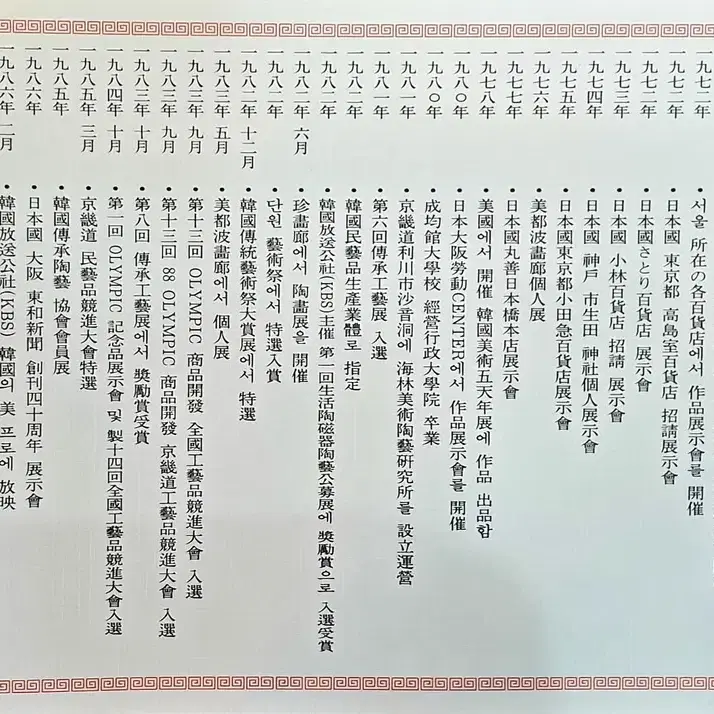 一九七二年 • 서울 所在의 各百貨店에서 作品展示會를 開催
一九七二年 • 日本國 東京都 高島室百貨店 招請展示會
一九七二年 • 日本國さとり百貨店 展示會
一九七三年 • 日本國 小林百貨店 招請 展示會
一九七四年 • 日本國 神戶 市生田 神社個人展示會
一九七五年 • 日本國東京都小田急百貨店展示會
一九七六年 • 美都波畫廊個人展
一九七七年 • 日本國丸善日本橋本店展示會
一九七八年 • 美國에서 開催 韓國美術五天年展에 作品 出品함
一九八〇年 • 日本大阪勞動CENTER에서 作品展示會를 開催
一九八〇年 • 成均館大學校 經營行政大學院 卒業
一九八一年 • 京畿道利川市沙音洞에 海林美術陶藝硏究所를 設立運營
一九八一年 • 第六回傳承工藝展 入選
一九八二年 • 韓國民藝品生産業體로 指定
一九八二年 • 韓國放送公社(KBS)主催 第一回生活陶磁器陶藝公募展에 獎勵賞으로 入選受賞
一九八二年 六月 • 珍畫廊에서 陶畫展을 開催
一九八二年 • 단원 藝術祭에서 特選入賞
一九八二年 十二月 • 韓國傳統藝術祭大賞展에서 特選
一九八三年 五月 • 美都波畫廊에서 個人展
一九八三年 九月 • 第十三回 OLYMPIC 商品開發 全國工藝品競進大會 入選
一九八三年 九月 • 第十三回 88 OLYMPIC 商品開發 京畿道工藝品競進大會 入選
一九八三年 十月 • 第八回 傳承工藝展에서 獎勵賞受賞
一九八四年 十月 • 第一回 OLYMPIC 記念品展示會 및 製十四回全國工藝品競進大會入選
一九八五年 三月 • 京畿道 民藝品競進大會特選
一九八五年 • 韓國傳承陶藝 協會會員展
一九八六年 • 日本國 大阪 東和新聞 創刊四十周年 展示會
一九八六年 二月 • 韓國放送公社(KBS) 韓國의 美 프로에 放映